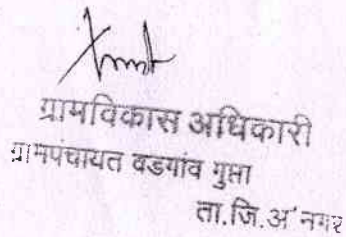 ग्रामविकास अधिकारी
ग्रामपंचायत वडगांव गुप्ता
ता.जि.अ'नगर